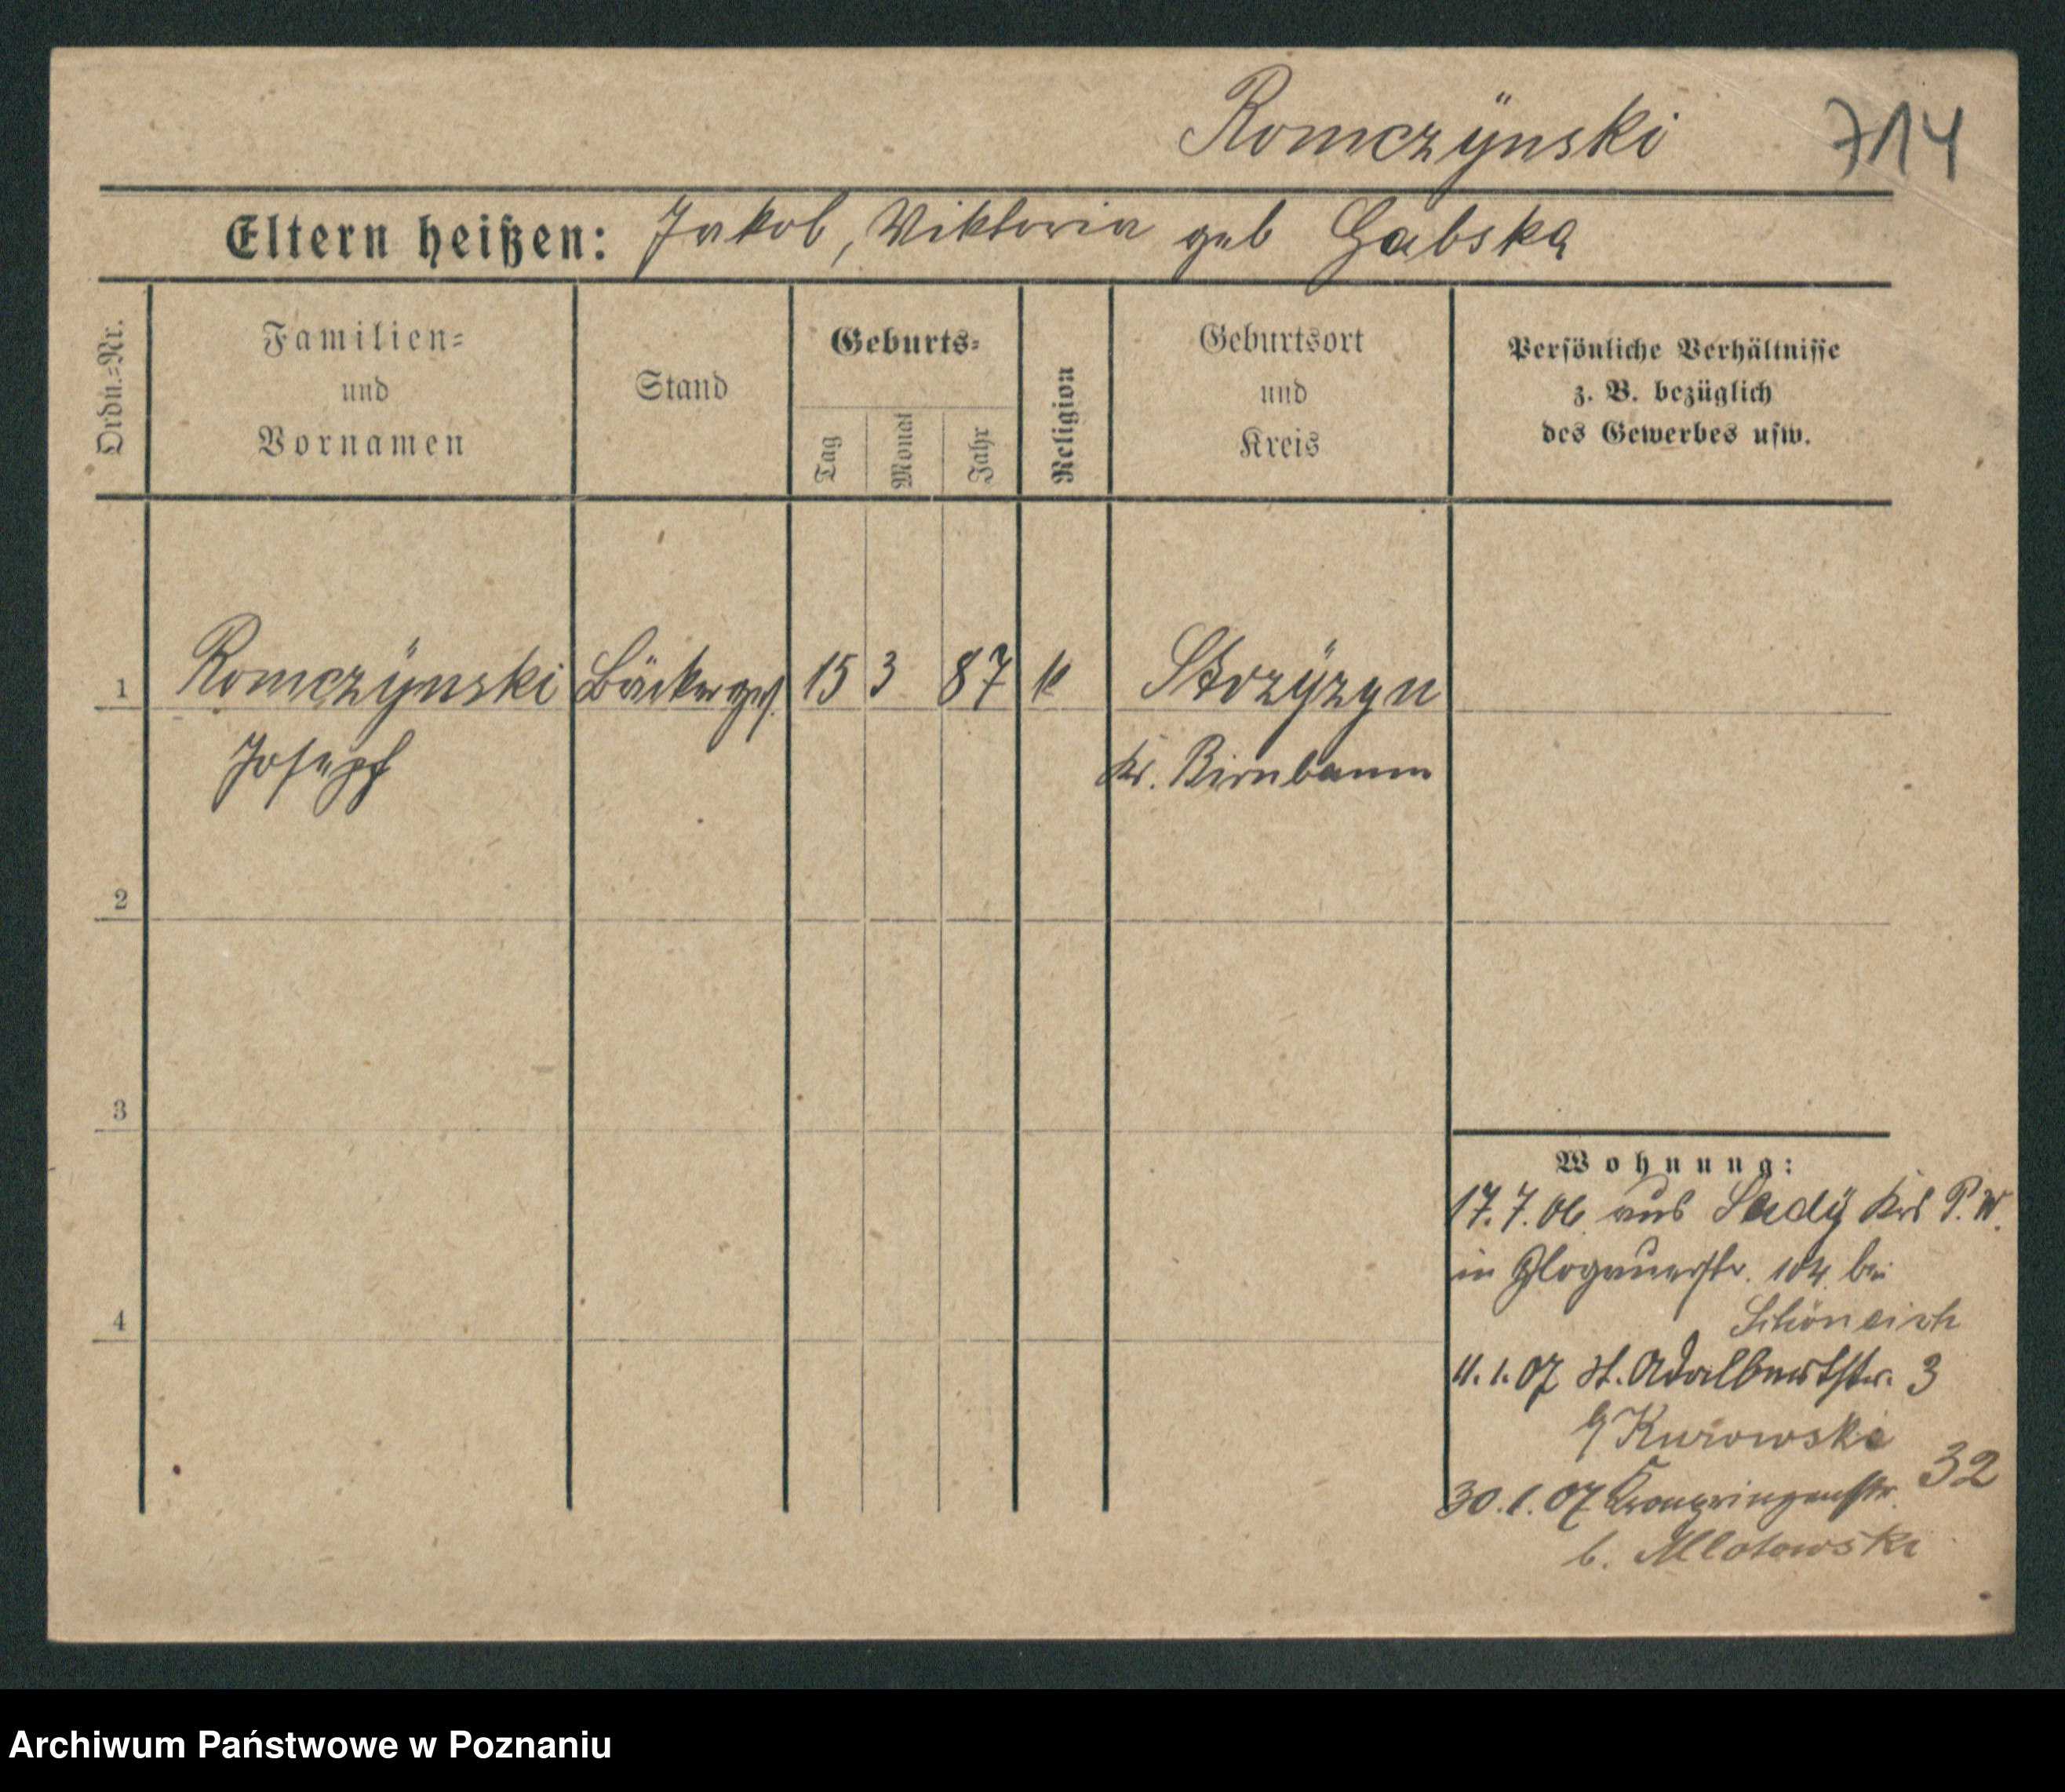 Romczÿnski 714
Eltern heißen: Jakob, Viktoria geb Gabska
Ordn.=Nr.
Familien=
und
Vornamen
Stand
Geburts=
Tag
Monat
Jahr
Religion
Geburtsort
und
Kreis
Persönliche Verhältnisse
z. B. bezüglich
des Gewerbes usw.
1 Romczÿnski Bäckerges. 15 3 87 k Strzÿzyn
Joseph Kr. Birnbaum
2
3
4
Wohnung:
17.7.06 aus Sadÿ Krs P. W.
in Glogauerstr. 104 bei
Schöneich
11.1.07 St. Adalbertstr. 3
Kurowski
30.1.07 Kronprinzenstr. 32
b. Mlotowski
Archiwum Państwowe w Poznaniu